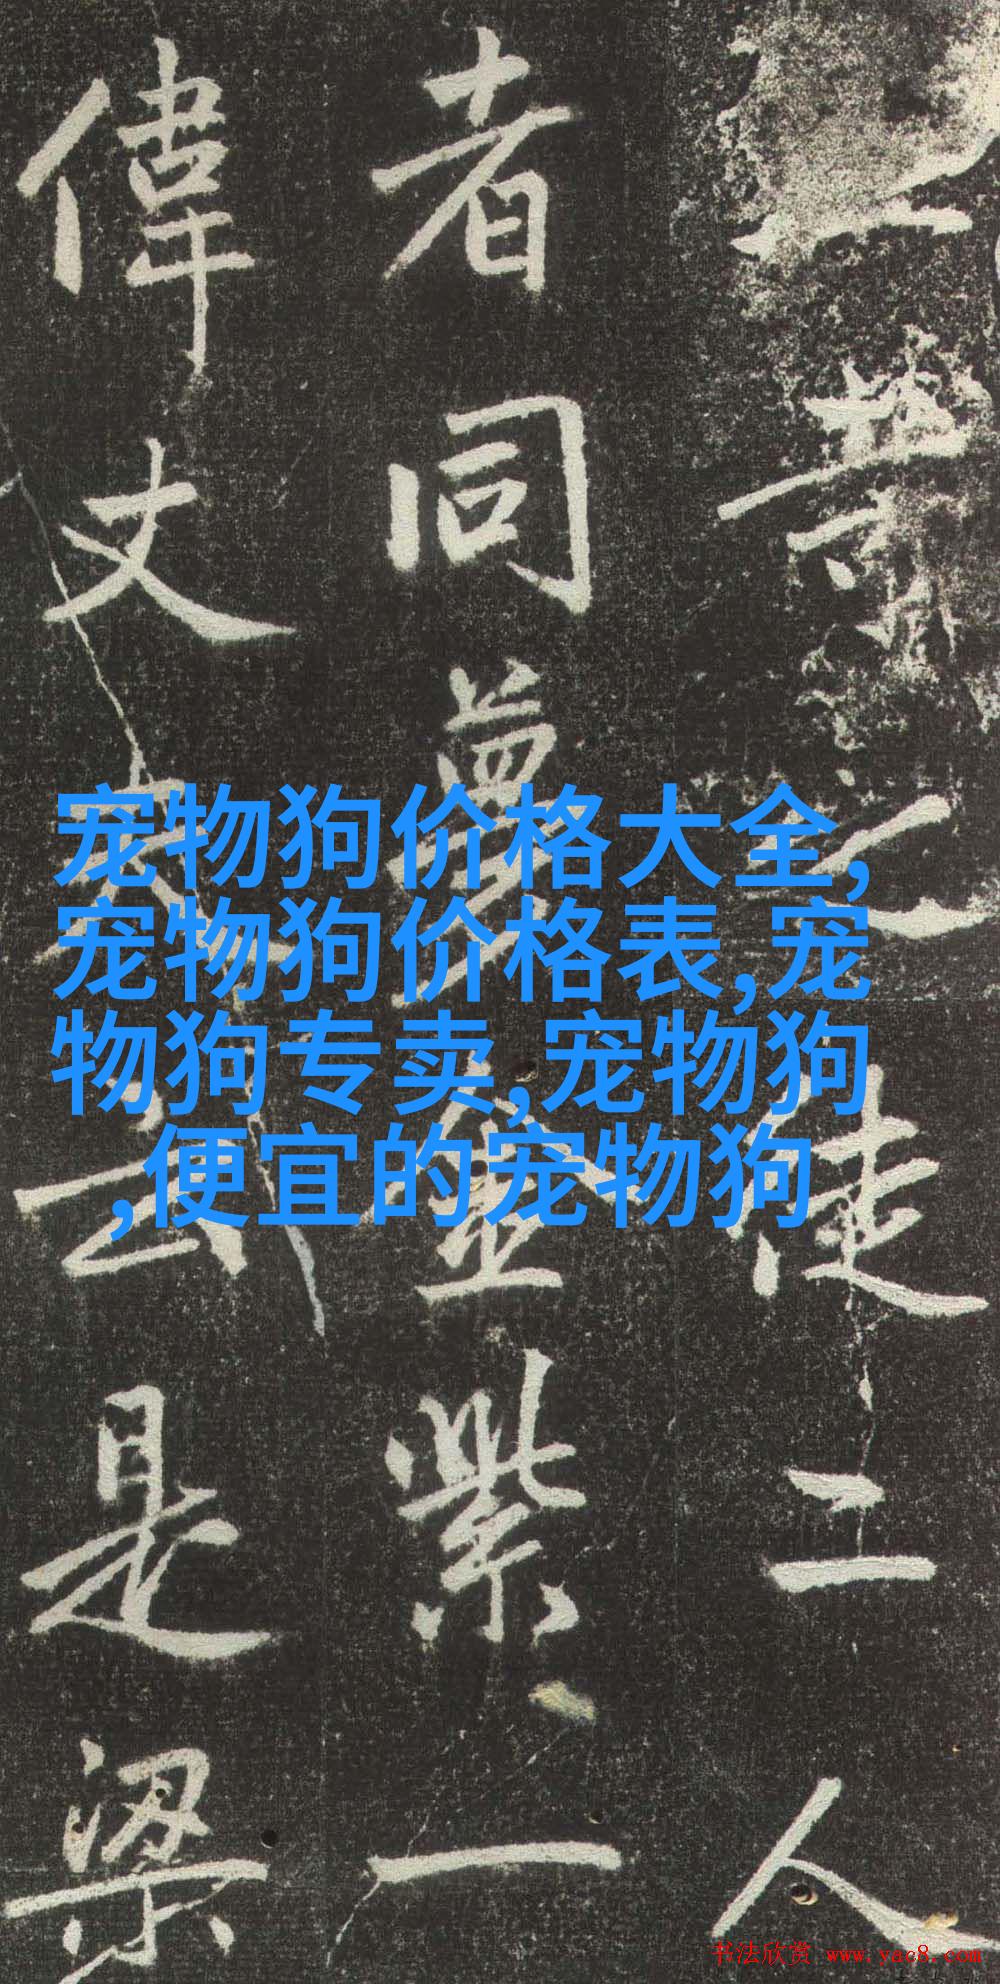 業之徒二人
者同夢金紫一
偉丈夫云是梁
宠物狗价格大全,
宠物狗价格表,宠
物狗专卖,宠物狗
,便宜的宠物狗
书法欣赏 www.yac8.com